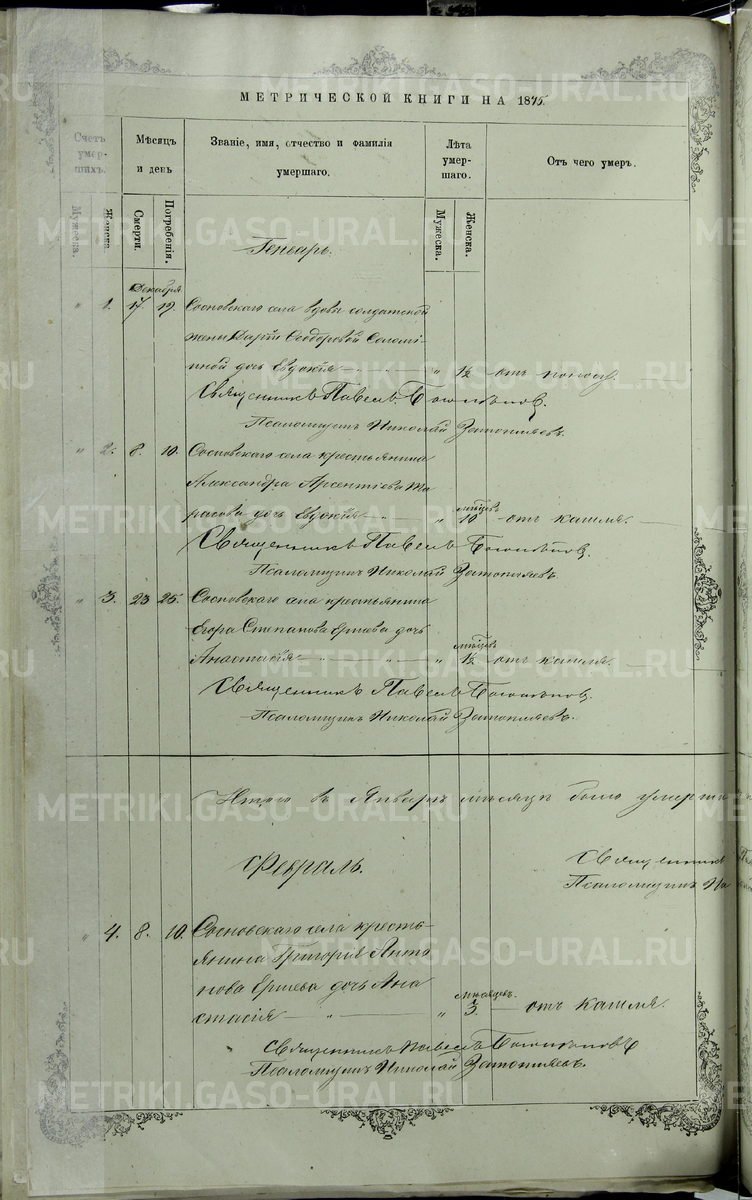 МЕТРИЧЕСКОЙ КНИГИ НА 1875.
Счетъ умершихъ.
Мѣсяцъ и день
Званіе, имя, отчество и фамилія умершаго.
Лѣта умершаго.
Отъ чего умеръ.
Мужеска.
Женска.
Смерти.
Погребенія.
Мужеска.
Женска.
Генварь.
Декабря
" 1. 17. 19. Сосновскаго села вдовы солдатской
жены Дарьи Ѳеодоровой
дочь Евдокія " 1½ отъ поносу.
Священникъ Павелъ
Псаломщикъ Николай
" 2. 8. 10. Сосновскаго села крестьянина
Александра Арсентіева
дочь Евдокія " мѣсяцев 10 отъ кашля.
Священникъ Павелъ
Псаломщикъ Николай
" 3. 23 25. Сосновскаго села крестьянина
Егора Степанова Ершева дочь
Анастасія " " " 1½ отъ кашля.
Священникъ Павелъ
Псаломщикъ Николай
Итого въ Январѣ мѣсяцѣ было умерши
Февраль.
Священникъ
Псаломщикъ Ни
" 4. 8. 10. Сосновскаго села кресть-
янина Григорія Анто
нова Ершева дочь Ана
стасія " " мѣсяцев. 3. отъ кашля.
Священникъ Павелъ
Псаломщикъ Николай
METRIKI.GASO-URAL.RU